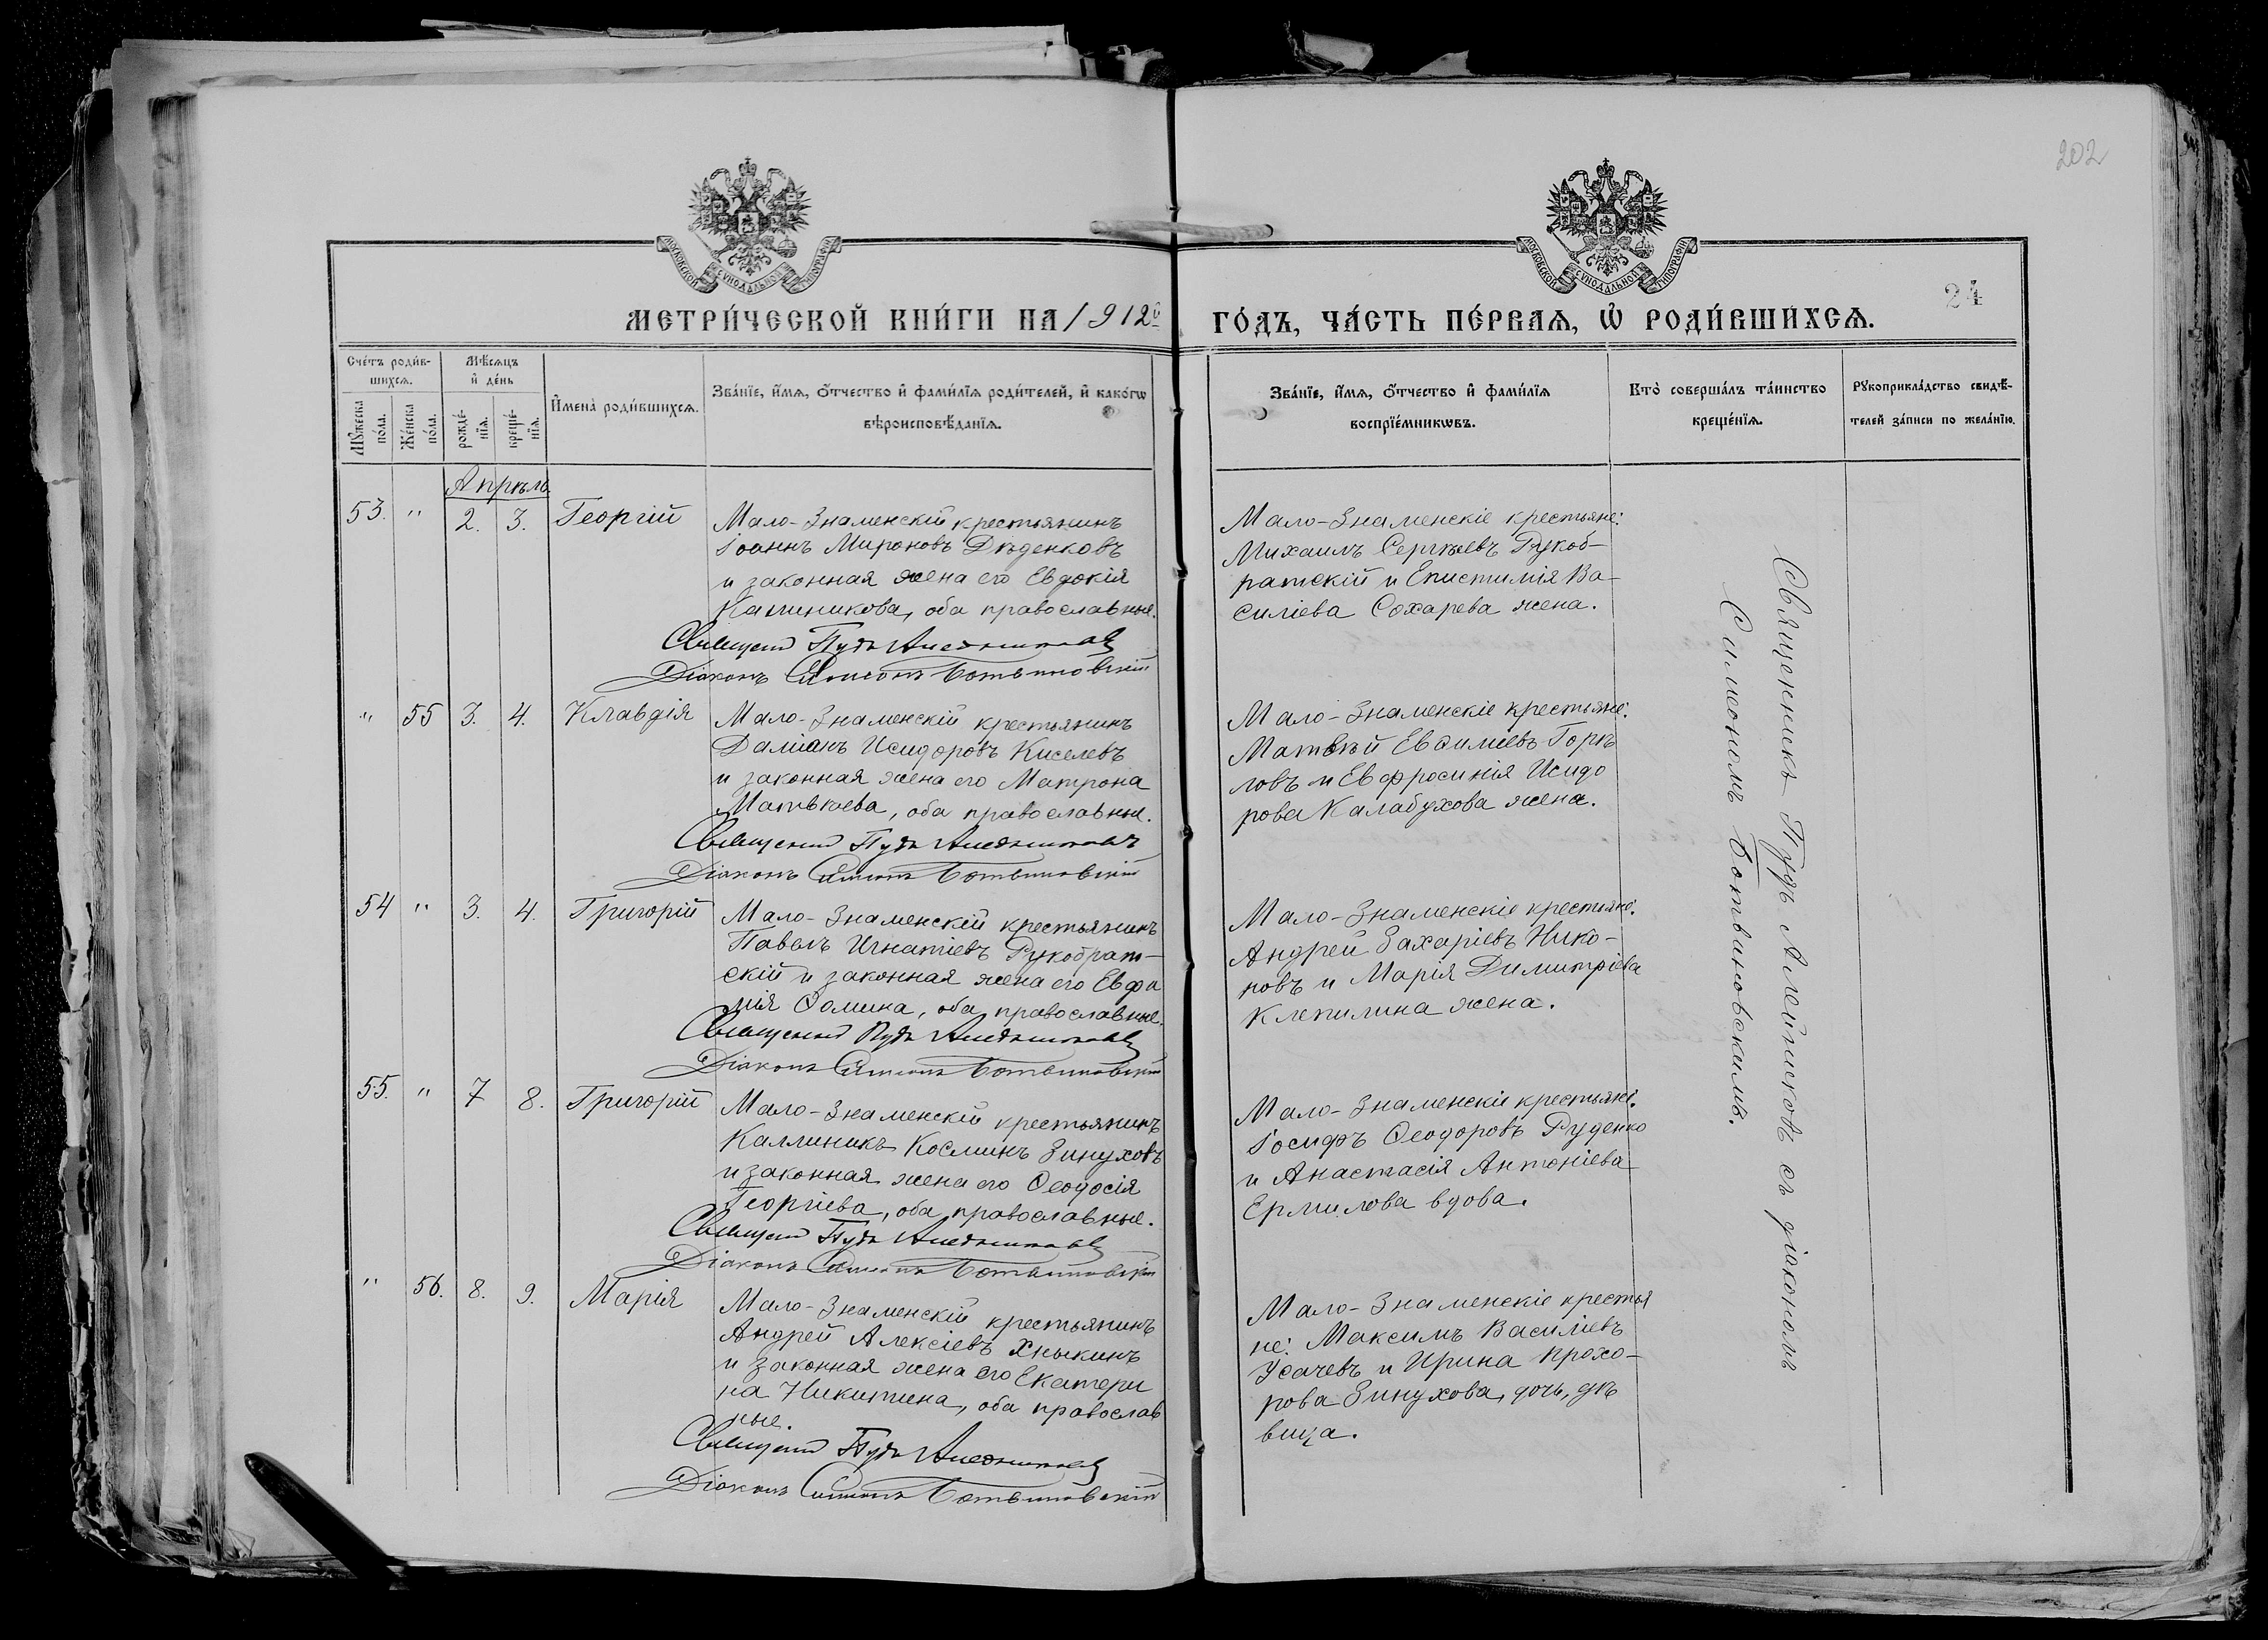 202
МОСКОВСКОЙ СѴНОДАЛЬНОЙ ТИПОГРАФІИ
МОСКОВСКОЙ СѴНОДАЛЬНОЙ ТИПОГРАФІИ
24
МЕТРИ́ЧЕСКОЙ КНИ́ГИ НА 1912й ГО́ДЪ, ЧА́СТЬ ПЕ́РВАѦ, Ѡ҆ РОДИ́ВШИХСѦ.
Сче́тъ роди́в-
шихсѧ.
Мꙋ́жеска
по́ла.
Же́нска
по́ла.
Мѣ́сѧцъ
и҆ де́нь
рожде́-
нїѧ.
креще́-
нїѧ.
И҆мена̀ роди́вшихсѧ.
Зва́нїе, и҆́мѧ, ѻ҆́тчество и҆ фами́лїѧ роди́телей, и҆ како́гѡ
вѣроисповѣ́данїѧ.
Зва́нїе, и҆́мѧ, ѻ҆́тчество и҆ фами́лїѧ
воспрїе́мникѡвъ.
Кто̀ соверша́лъ та́инство
креще́нїѧ.
Рꙋкоприкла́дство свидѣ́-
телей за́писи по жела́нїю.
Апрѣль
53. " 2. 3. Георгій
Мало-Знаменскій крестьянинъ
Іоаннъ Мироновъ Дѣденковъ
и законная жена его Евдокія
Калиникова, оба православные.
Священ Пудъ Алейниковъ
Діаконъ Симеонъ Ботвиновскій
Мало-Знаменскіе крестьяне:
Михаилъ Сергѣевъ Рукоб-
ратскій и Епистимія Ва-
силіева Сохарева жена.
" 55 3. 4. Клавдія
Мало-Знаменскій крестьянинъ
Даміанъ Исидоровъ Киселевъ
и законная жена его Матрона
Матвѣева, оба православные.
Священник Пудъ Алейниковъ
Діаконъ Симеонъ Ботвиновскій
Мало-Знаменскіе крестьяне:
Матвѣй Евѳиміевъ Горѣ
ловъ и Евфросинія Исидо
рова Калабухова жена.
54 " 3. 4. Григорій
Мало-Знаменскій крестьянинъ
Павелъ Игнатіевъ Рукобрат-
скій и законная жена его Евфи
мія Ѳомина, оба православные.
Священник Пудъ Алейниковъ
Діаконъ Симеонъ Ботвиновскій
Мало-Знаменскіе крестьяне:
Андрей Захаріевъ Нико-
новъ и Марія Димитріева
Клепилина жена.
55. " 7 8. Григорій
Мало-Знаменскій крестьянинъ
Каллиникъ Косминъ Зинуховъ
и законная жена его Ѳеодосія
Георгіева, оба православные.
Священ Пудъ Алейниковъ
Діаконъ Симеонъ Ботвиновскій
Мало-Знаменскіе крестьяне:
Іосифъ Ѳеодоровъ Руденко
и Анастасія Антоніева
Ермилова вдова.
" 56. 8. 9. Марія
Мало-Знаменскій крестьянинъ
Андрей Алексіевъ Хныкинъ
и законная жена его Екатери
на Никитина, оба православ
ные.
Священ Пудъ Алейниковъ
Діаконъ Симеонъ Ботвиновскій
Мало-Знаменскіе крестья
не: Максимъ Василіевъ
Усачевъ и Ирина Прохо-
рова Зинухова, дочь, дѣ
вица.
Священникъ Пудъ Алейниковъ съ діакономъ
Симеономъ Ботвиновскимъ.